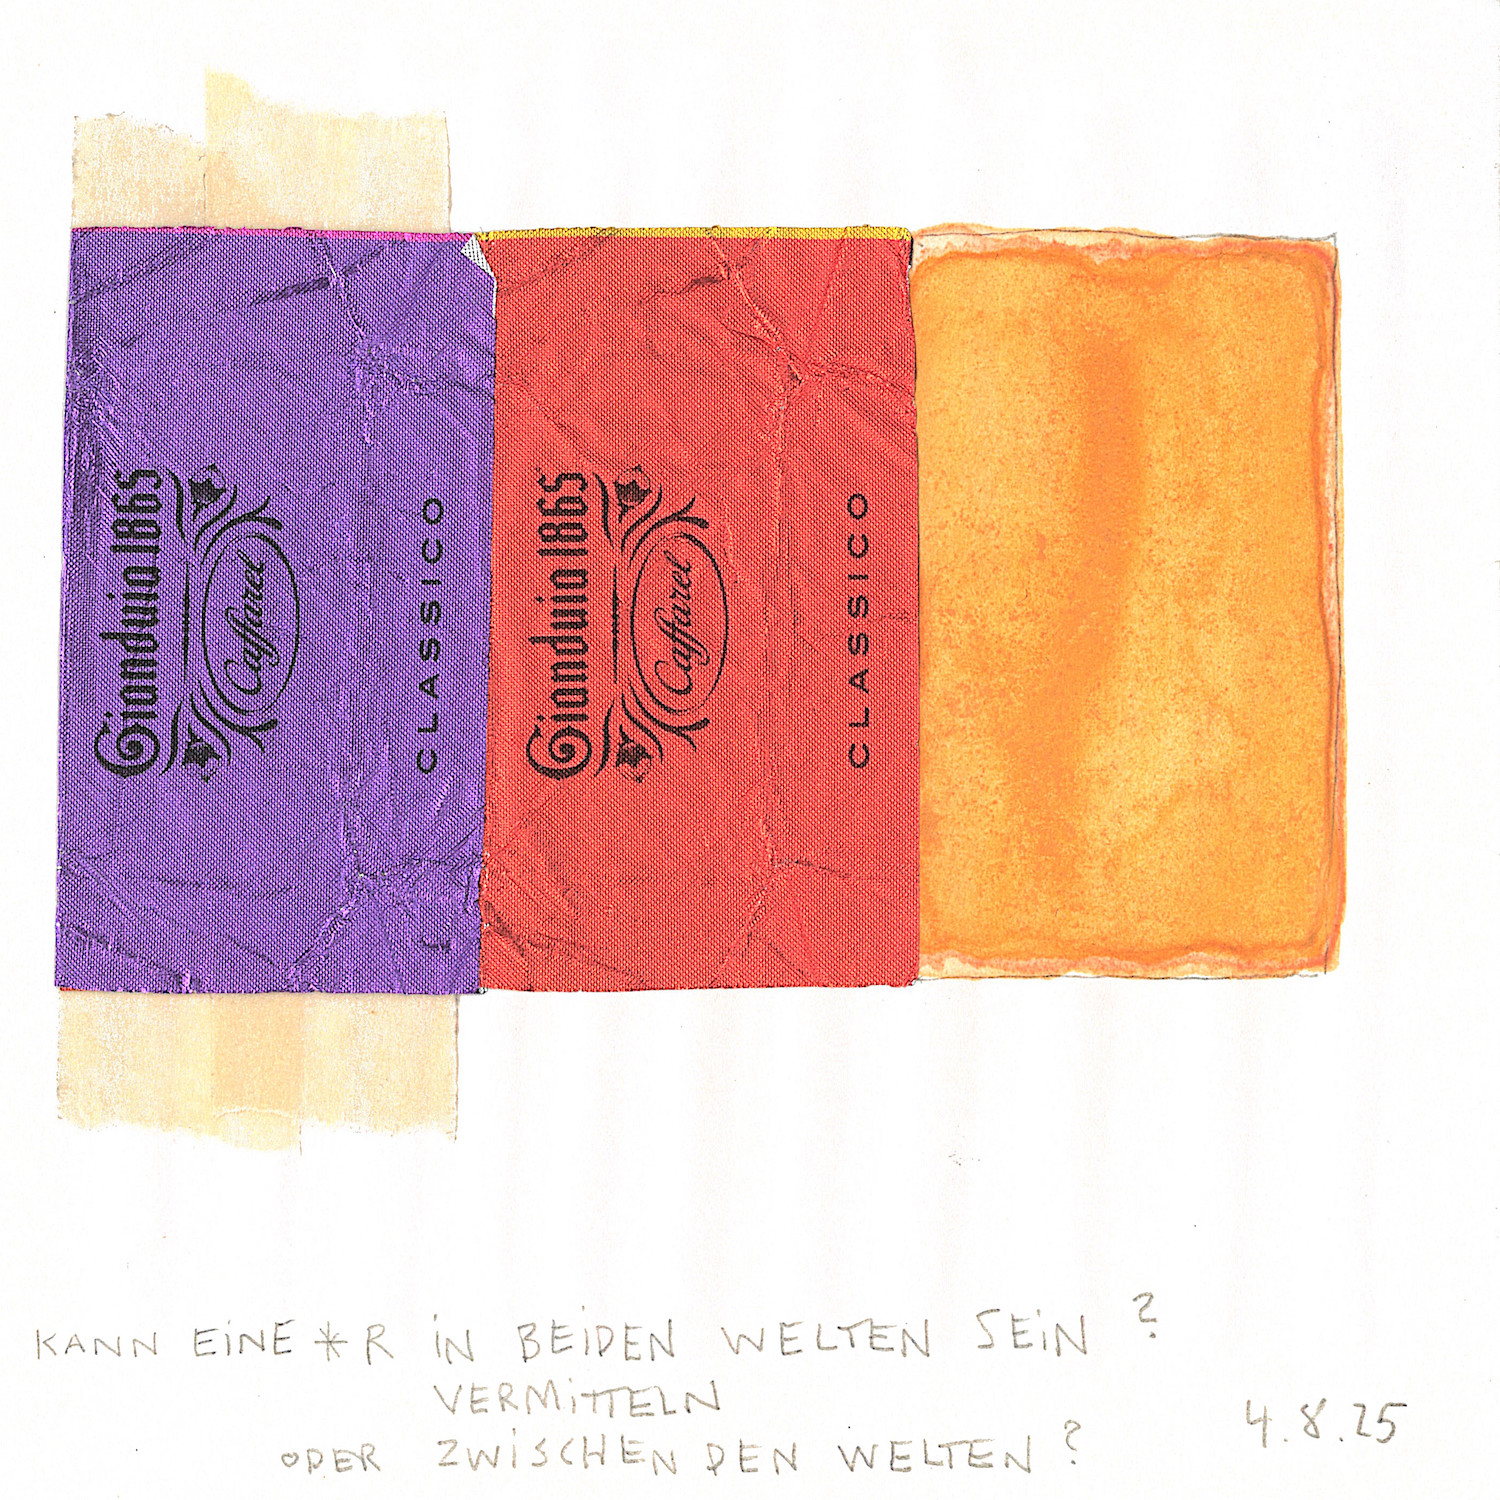 Gianduia 1865
Caffarel
CLASSICO
Gianduia 1865
Caffarel
CLASSICO
KANN EINE*R IN BEIDEN WELTEN SEIN?
VERMITTELN
ODER ZWISCHEN DEN WELTEN?
4.8.25